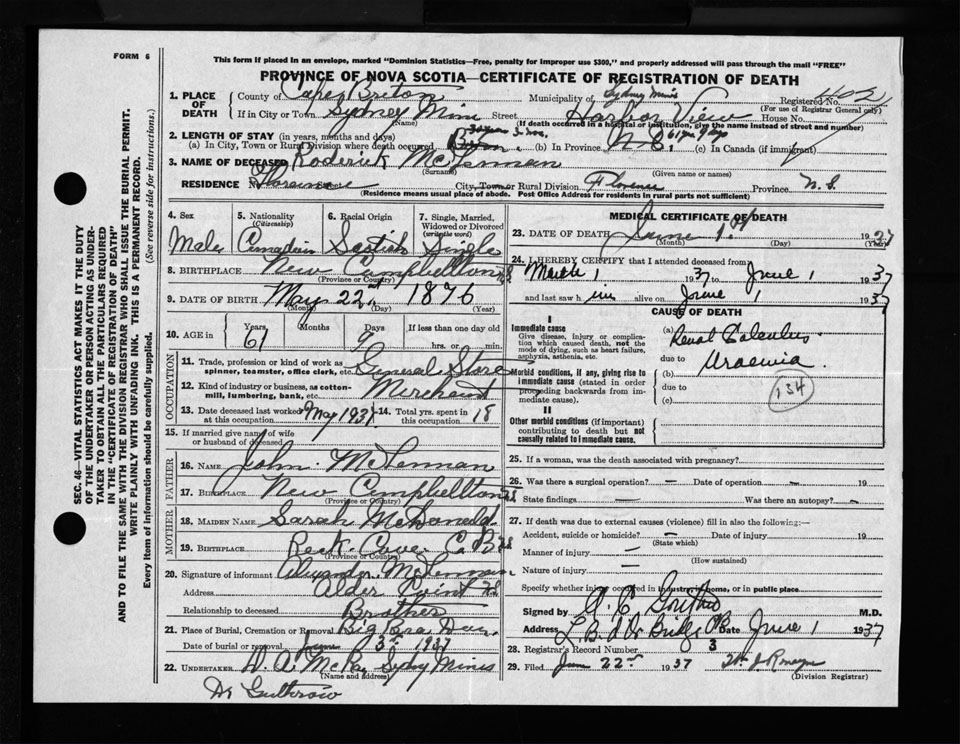 FORM 6
This form if placed in an envelope, marked "Dominion Statistics—Free, penalty for improper use $300," and properly addressed will pass through the mail "FREE"
PROVINCE OF NOVA SCOTIA—CERTIFICATE OF REGISTRATION OF DEATH
1. PLACE OF DEATH County of Cape Breton Municipality of Sydney Mines Registered No. 402
(For use of Registrar General only)
If in City or Town Sydney Mines Street Harbor View House No.
(Name) (If death occurred in a hospital or institution, give the name instead of street and number)
2. LENGTH OF STAY (in years, months and days)
(a) In City, Town or Rural Division where death occurred (b) In Province N.S. 61 yrs 9 dys (c) In Canada (if immigrant)
3. NAME OF DECEASED Roderick McLennan
(Surname) (Given name or names)
RESIDENCE Florence City, Town or Rural Division Florence Province N.S.
(Residence means usual place of abode. Post Office Address for residents in rural parts not sufficient)
4. Sex Male
5. Nationality (Citizenship) Canadian
6. Racial Origin Scotish
7. Single, Married, Widowed or Divorced (write the word) Single
8. BIRTHPLACE New Campbellton N.S
(Province or Country)
9. DATE OF BIRTH May 22nd 1876
(Month) (Day) (Year)
10. AGE in Years 61 Months Days 9 If less than one day old hrs. or min.
OCCUPATION
11. Trade, profession or kind of work as spinner, teamster, office clerk, etc. General Store
12. Kind of industry or business, as cotton-mill, lumbering, bank, etc. Merchant
13. Date deceased last worked at this occupation May 1937 14. Total yrs. spent in this occupation 18
15. If married give name of wife or husband of deceased
FATHER
16. NAME John McLennan
17. BIRTHPLACE New Campbellton N.S
(Province or Country)
MOTHER
18. MAIDEN NAME Sarah McDonald
19. BIRTHPLACE C.B N.S
(Province or Country)
20. Signature of informant Alexander McLennan
Address Alder Point N.S
Relationship to deceased Brother
21. Place of Burial, Cremation or Removal Big Bras D'or
Date of burial or removal June 3rd 1937
22. UNDERTAKER Sydney Mines
(Name and address)
MEDICAL CERTIFICATE OF DEATH
23. DATE OF DEATH June 1st 1937
(Month) (Day) (Year)
24. I HEREBY CERTIFY that I attended deceased from
March 1 1937 to June 1 1937
and last saw him alive on June 1 1937
CAUSE OF DEATH
I
Immediate cause
Give disease, injury or complication which caused death, not the mode of dying, such as heart failure, asphyxia, asthenia, etc.
(a) Renal Calculus
due to
Morbid conditions, if any, giving rise to immediate cause (stated in order proceeding backwards from immediate cause).
(b) Uraemia
due to
(c)
134
II
Other morbid conditions (if important) contributing to death but not causally related to immediate cause.
25. If a woman, was the death associated with pregnancy?
26. Was there a surgical operation? — Date of operation — 19
State findings Was there an autopsy? —
27. If death was due to external causes (violence) fill in also the following:—
Accident, suicide or homicide? — Date of injury 19
(State which)
Manner of injury —
(How sustained)
Nature of injury —
Specify whether injury occurred in industry, in home, or in public place
Signed by M.D.
Address Date June 1 1937
28. Registrar's Record Number 3
29. Filed June 22nd 1937
(Division Registrar)
SEC. 46—VITAL STATISTICS ACT MAKES IT THE DUTY
OF THE UNDERTAKER OR PERSON ACTING AS UNDER-
TAKER TO OBTAIN ALL THE PARTICULARS REQUIRED
IN THE "CERTIFICATE OF REGISTRATION OF DEATH"
AND TO FILE THE SAME WITH THE DIVISION REGISTRAR WHO SHALL ISSUE THE BURIAL PERMIT.
WRITE PLAINLY WITH UNFADING INK. THIS IS A PERMANENT RECORD.
Every item of information should be carefully supplied. (See reverse side for instructions.)